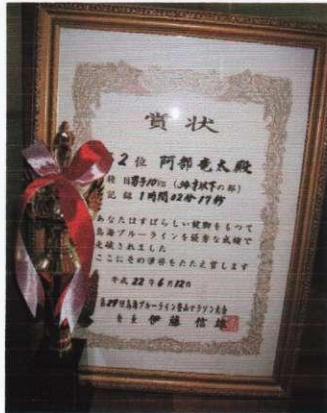 賞状
2位 阿部竜太殿
種目男子10㎞ (34才以下の部)
記録1時間02分17秒
あなたはすばらしい健脚をもって
鳥海ブルーラインを優秀な成績で
走破されました
ここにその栄誉をたたえ賞します
平成22年6月12日
第29回鳥海ブルーライン登山マラソン大会
会長 伊藤信雄